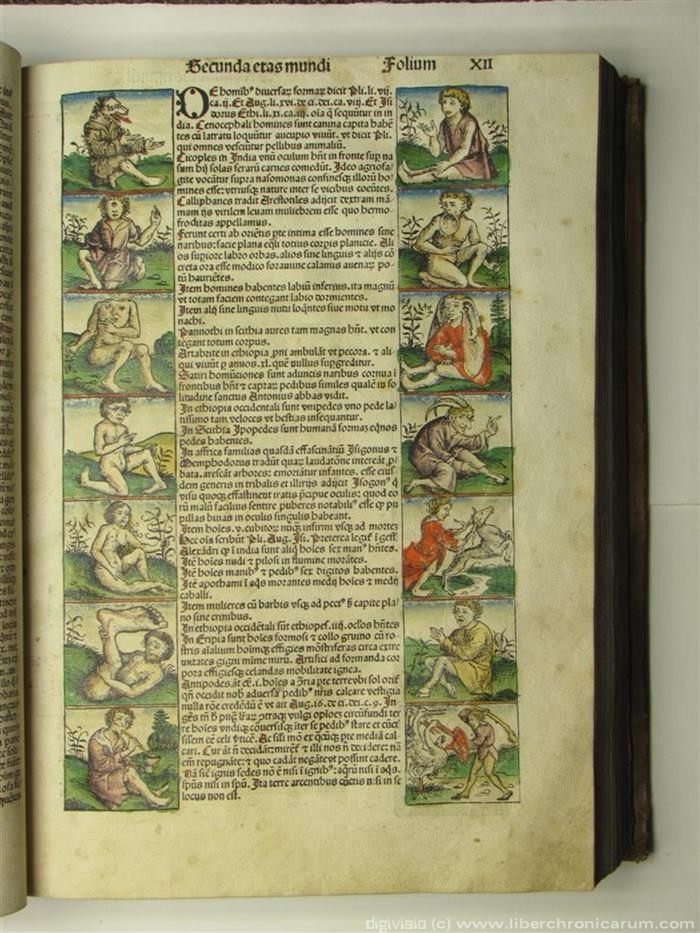 Secunda etas mundi Folium XII
DE homĩbꝰ diuersaꝝ formaꝝ dicit Pli. li. vij.
ca. ij. Et Aug. li. xvi. de ci. dei. ca. viij. Et Isi
dorus Ethi. li. xi. ca. iij. oĩa q̃ sequũtur in in
dia. Cenocephali homines sunt canina capita habẽ
tes cũ latratu loquũtur aucupio viuũt. vt dicit Pli.
qui omnes vescũtur pellibus animaliũ.
Cicoples in India vnũ oculum hñt in fronte sup na
sum hij solas feraꝝ carnes comedũt. Ideo agriofa
gite vocãtur supra nasomonas confinesqꝫ illoꝝ ho
mines esse: vtriusqꝫ nature inter se vicibus coeũtes.
Calliphanes tradit Arestotiles adijcit dextram mã
mam ijs virilem leuam muliebrem esse quo hermo
froditas appellamus.
Ferunt certi ab oriẽtis pte intima esse homines sine
naribus: facie plana eq̃li totius corpis planicie. Ali
os supiore labro orbas. alios sine linguis ⁊ alijs cõ
creta ora esse modico foramine calamis auenaꝝ po
tũ hauriẽtes.
Item homines habentes labiũ inferius. ita magnũ
vt totam faciem contegant labio dormientes.
Item alij sine linguis nutu loq̃ntes siue motu vt mo
nachi.
Pannothi in scithia aures tam magnas hñt. vt con
tegant totum corpus.
Artabrite in ethiopia ꝓni ambulãt vt pecora. ⁊ ali
qui viuũt ꝑ annos. xl. que nullus supgreditur.
Satiri homũciones sunt aduncis naribus cornua ĩ
frontibus hñt ⁊ capraꝝ pedibus similes qualẽ in so
litudine sanctus Antonius abbas vidit.
In ethiopia occidentali sunt vnipedes vno pede la/
tissimo tam veloces vt bestias insequantur.
In Scithia Ipopedes sunt humanã formaʒ eqnos
pedes habentes.
In affrica familias quasdã effascinãtiũ Isigonus ⁊
Memphodorus tradũt quaꝝ laudatõne intereãt ꝓ/
bata. arescãt arbores: emoriãtur infantes. esse eius
dem generis in tribalis et illirijs adijcit Isogonꝰ q̃
visu quoqꝫ effastinent iratis p̃cipue oculis: quod eo
rũ malũ facilius sentire puberes notabilꝰ esse ꝙ pu
pillas binas in oculis singulis habeant.
Item hoĩes. v. cubitoꝝ nũq̃ infirmi vsqꝫ ad mortẽ
Hec oĩa scribũt Pli. Aug. Isi. Preterea legiṫ ĩ gest̃
Alexãdri ꝙ ĩ india sunt aliq̃ hoĩes sex manꝰ hñtes.
Itẽ hoĩes nudi ⁊ pilosi in flumine morãtes.
Itẽ hoĩes manibꝰ ⁊ pedibꝰ sex digitos habentes.
Itẽ apothami ĩ aq̃s morantes medij hoĩes ⁊ medij
caballi.
Item mulieres cũ barbis vsqꝫ ad pectꝰ ß capite pla/
no sine crinibus.
In ethiopia occidẽtali sũt ethiopes. iiij. oc̃los hñtes
In Eripia sunt hoĩes formosi ⁊ collo gruino cũ ro/
stris aĩalium hoĩmqꝫ effigies mõstriferas circa extre
mitates gigni mĩme mirũ. Artifici ad formanda cor
pora effigiesqꝫ celandas mobilitate ignea.
Antipodes.aũt eẽ. i. hoĩes a ꝯ̃ria pte terre vbi sol oriṫ
qñ occidit nob̃ aduersa pedibꝰ nr̃is calcare vestigia
nulla rõe credẽdũ ẽ vt ait Aug. 16. de ci. dei. c. 9. In
gẽs tñ ħ pugͣ lr̃aꝝ ꝯtraqꝫ vulgi opiões circũfundi ter
re hoĩes vndiqꝫ cõuersisqꝫ iter se pedibꝰ stare et cũct̃
silem eẽ celi v̾ticẽ. Ac sili mõ ex q̃cũqꝫ pte mediã cal/
cari. Cur aũt ñ decidãt: mireṫ ⁊ illi nos ñ decidere: nã
em̃ repugnãte: ⁊ quo cadãt negãte vt possint cadere.
Nã sic ignis sedes nõ ẽ nisi ĩ ignibꝰ: aq̃rũ nisi ĩ aq̃s.
sp̃us nisi in sp̃u. Ita terre arcentibus cũctis nisi in se
locus non est.
digivisio (c) www.liberchronicarum.com